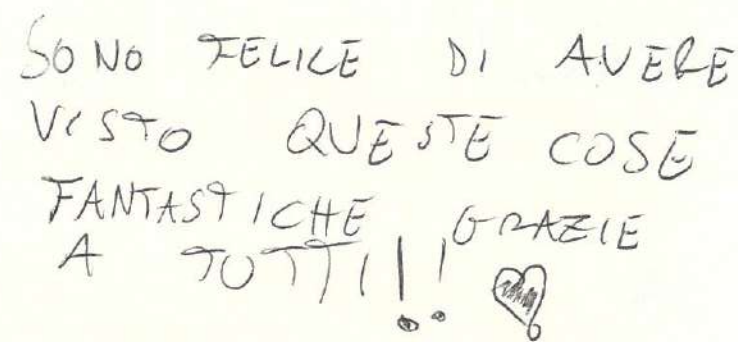 SONO FELICE DI AVERE
VISTO QUESTE COSE
FANTASTICHE GRAZIE
A TUTTI!!